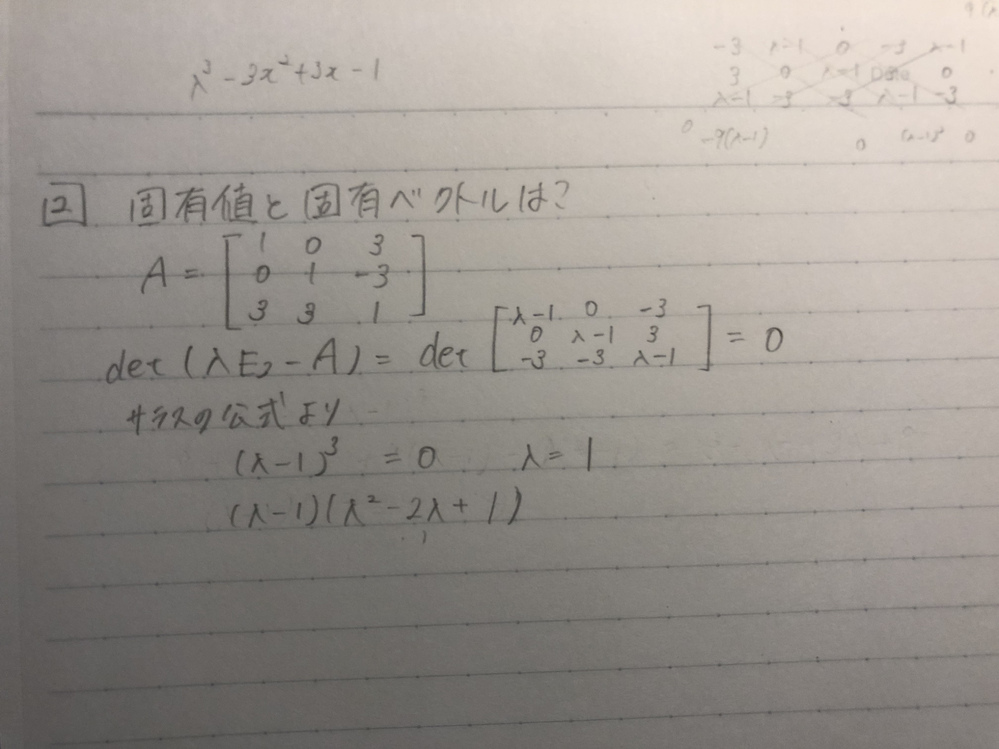 λ³ - 3x² + 3x - 1
-3 λ-1 0 -3 λ-1
3 0 λ-1 Date 0
λ-1 -3 -3 λ-1 -3
0 -9(λ-1) 0 (λ-1)³ 0
② 固有値と固有ベクトルは?
A = [1 0 3
0 1 -3
3 3 1]
det(λE₂-A) = det [λ-1 0 -3
0 λ-1 3
-3 -3 λ-1] = 0
サラスの公式より
(λ-1)³ = 0 λ = 1
(λ-1)(λ²-2λ+1)